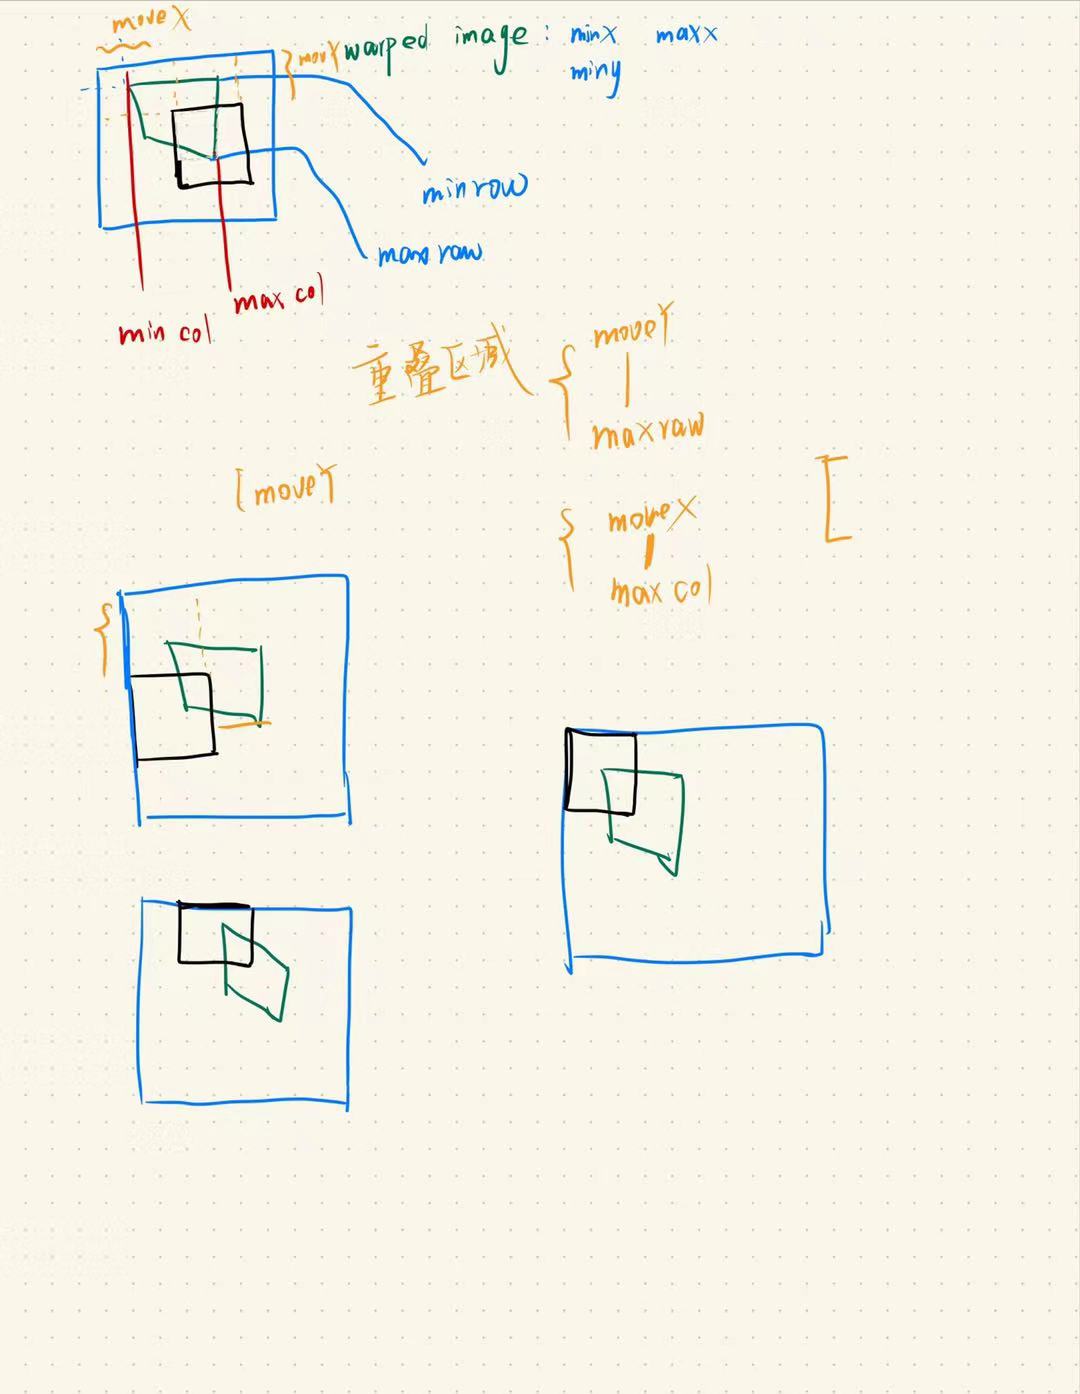 moveX
movY warped image : minx maxx
miny
min row
max raw
max col
min col
重叠区域
moveY
maxraw
[moveY
moveX
max col